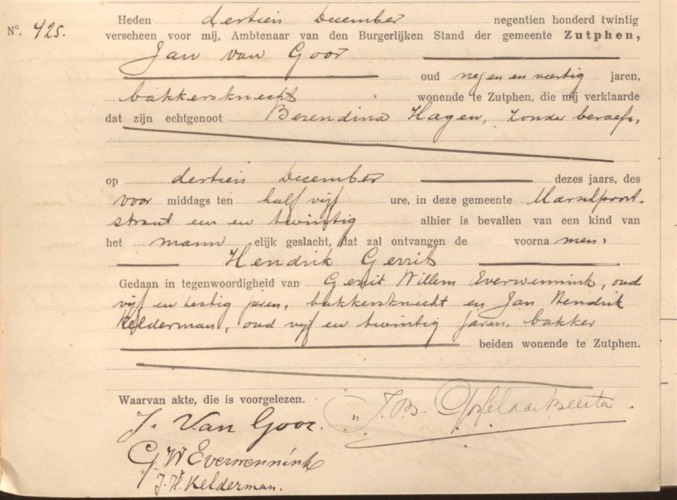 N°. 425.
Heden dertien December negentien honderd twintig
verscheen voor mij, Ambtenaar van den Burgerlijken Stand der gemeente Zutphen,
Jan van Goor
oud negen en veertig jaren,
bakkersknecht wonende te Zutphen, die mij verklaarde
dat zijn echtgenoot Berendina Hagen, zonder beroep,
op dertien December dezes jaars, des
voor middags ten half vijf ure, in deze gemeente Marschpoort-
straat een en twintig alhier is bevallen van een kind van
het mann elijk geslacht, dat zal ontvangen de voorna men:
Hendrik Gerrit
Gedaan in tegenwoordigheid van Gerrit Willem Everwennink, oud
vijf en zestig jaren, bakkersknecht en Jan Hendrik
Kelderman, oud vijf en twintig jaren, bakker
beiden wonende te Zutphen.
Waarvan akte, die is voorgelezen.
J. Van Goor.
G W Everwennink
J. H. Kelderman.